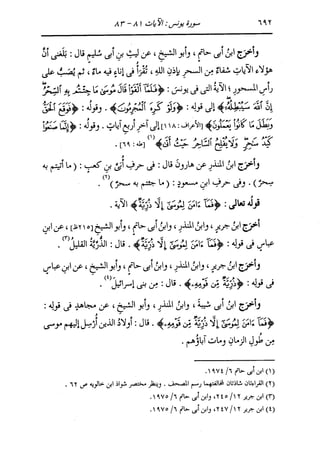 ٦٩٢ سورة يونس : الآيات ٨١ - ٨٣
وأخرج ابنُ أبى حاتمٍ ، وأبو الشيخِ ، عن ليثِ بنِ أبى سُليمٍ قال : بَلَغنى أنَّ
هؤلاء الآياتِ شفاءٌ مِن السحرِ بإذنِ اللهِ ، تُقرَأُ فى إناءٍ فيه ماءٌ ، ثم يُصَبُّ على
رأسِ المسحورِ ؛ الآيةُ التى فى يونسَ : ﴿فَلَمَّآ أَلْقَوْا۟ قَالَ مُوسَىٰ مَا جِئْتُم بِهِ ٱلسِّحْرُ
إِنَّ ٱللَّهَ سَيُبْطِلُهُۥٓ﴾ إلى قولِه : ﴿وَلَوْ كَرِهَ ٱلْمُجْرِمُونَ﴾ . وقولُه : ﴿فَوَقَعَ ٱلْحَقُّ
وَبَطَلَ مَا كَانُوا۟ يَعْمَلُونَ﴾ [الأعراف : ١١٨] إلى آخرِ أربعِ آياتٍ . وقولُه : ﴿إِنَّمَا صَنَعُوا۟
كَيْدُ سَٰحِرٍ وَلَا يُفْلِحُ ٱلسَّاحِرُ حَيْثُ أَتَىٰ﴾(١) [طه : ٦٩] .
وأخرج ابنُ المنذرِ عن هارونَ قال : فى حرفِ أُبىِّ بنِ كعبٍ : ( ما أتيتم به
سحرٌ ) . وفى حرفِ ابنِ مسعودٍ : ( ما جئتم به سحرٌ )(٢) .
قولُه تعالى : ﴿فَمَآ ءَامَنَ لِمُوسَىٰٓ إِلَّا ذُرِّيَّةٌ﴾ الآية .
أخرَج ابنُ جريرٍ ، وابنُ المنذرِ ، وابنُ أبى حاتمٍ ، وأبو الشيخِ [٢١٥ظ] ، عن ابنِ
عباسٍ فى قولِه : ﴿فَمَآ ءَامَنَ لِمُوسَىٰٓ إِلَّا ذُرِّيَّةٌ﴾ . قال : الذُّرِّيَّةُ القليلُ(٣) .
وأخرج ابنُ جريرٍ ، وابنُ المنذرِ ، وابنُ أبى حاتمٍ ، وأبو الشيخِ ، عن ابنِ عباسٍ
فى قولِه : ﴿ذُرِّيَّةٌ مِّن قَوْمِهِۦ﴾ . قال : مِن بنى إسرائيلَ(٤) .
وأخرج ابنُ أبى شيبةَ ، وابنُ المنذرِ ، وأبو الشيخِ ، عن مجاهدٍ فى قولِه :
﴿فَمَآ ءَامَنَ لِمُوسَىٰٓ إِلَّا ذُرِّيَّةٌ مِّن قَوْمِهِۦ﴾ . قال : أولادُ الذين أُرسِل إليهم موسى
مِن طولِ الزمانِ ومات آباؤُهم .
(١) ابن أبى حاتم ٦/ ١٩٧٤.
(٢) القراءتان شاذتان لمخالفتهما رسم المصحف . وينظر مختصر شواذ ابن خالويه ص ٦٢ .
(٣) ابن جرير ١٢/ ٢٤٥، وابن أبى حاتم ٦/ ١٩٧٥.
(٤) ابن جرير ١٢/ ٢٤٧، وابن أبى حاتم ٦/ ١٩٧٥.